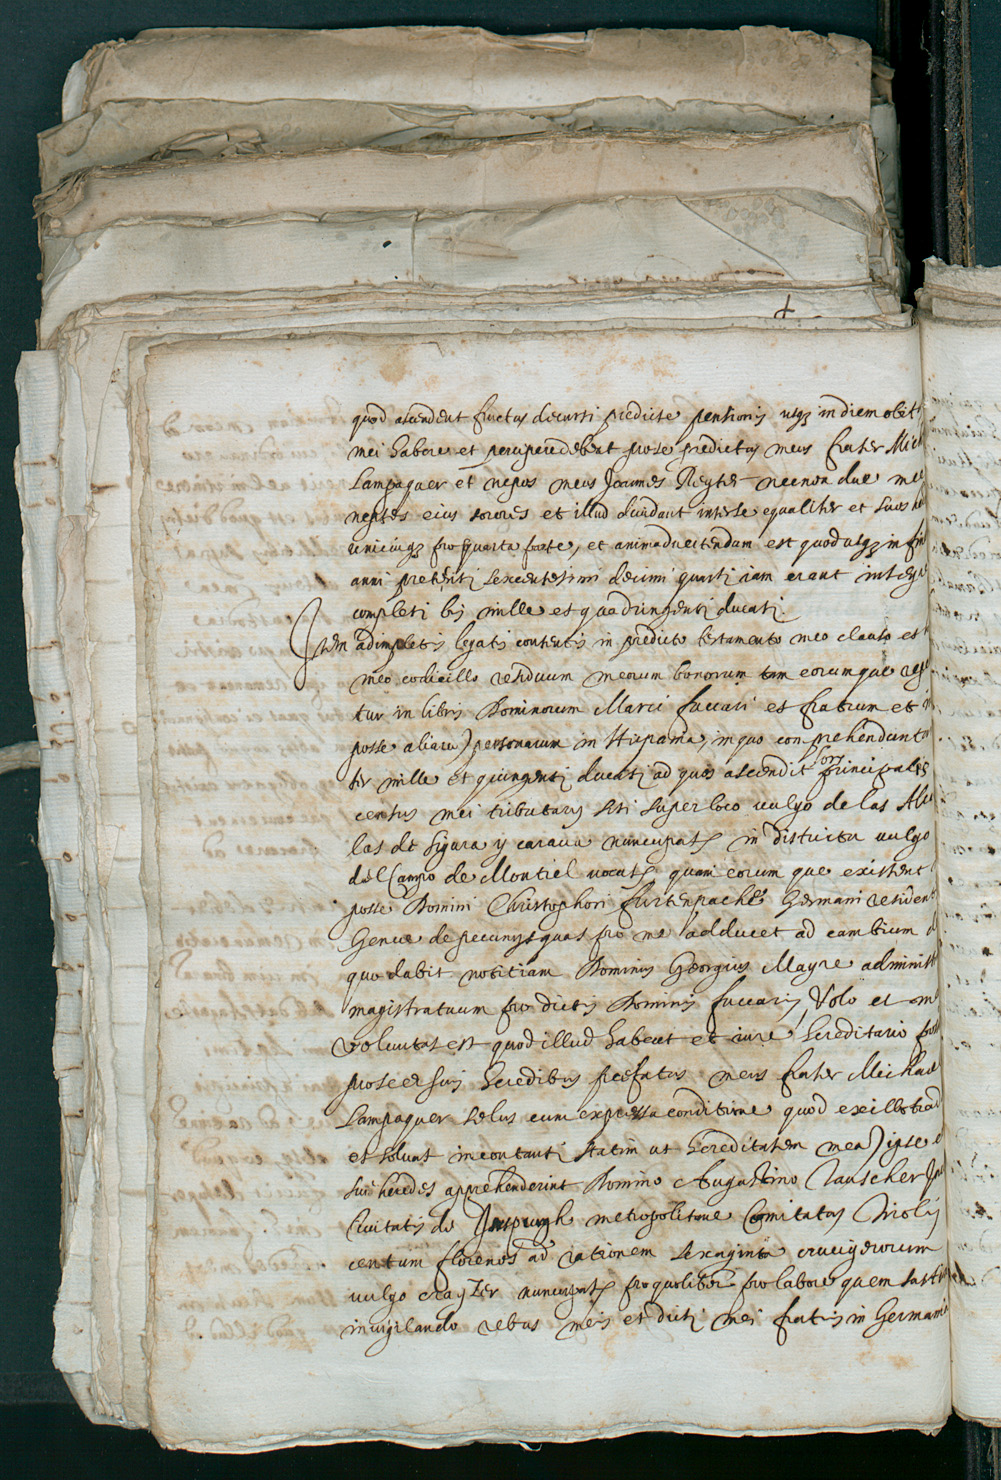 quod ascendent fructus decursi predicte pensionis usq3 in diem obit
mei habere et percipere debeat prose predictus meus frater Mich
Lampaguer et nepos meus Joannes Reyter necnon due mee
neptes eius sorores et illud dividant interse equaliter et suos
unicuiq3 pro quarta parte, et animadvertendum est quod usq3 in fin
anni preteriti sexcentesimi decimi quarti iam erant integre
completi bis mille et quadringenti ducati.
Item adimpletis legatis contentis in predicto testamento meo clauso est
meo codicillo residuum meorum bonorum tam eorum que rep
tur in libris Dominorum Marci fuccari et fratrum et
posse aliaru personarum in Hispania, in quo comprehendunt
ter mille et quingenti ducati ad quos ascendit sors principalis
census mei tributarij siti super loco vulgo de las Abe
las de Sigura y carava nuncupat in districtu vulgo
del Campo de Montiel vocat quam eorum que existent
posse Domini Christophori furtenpache Germani resident
Genue de pecunijs quas pro me adducet ad cambium
quo dabit notitiam Dominus Georgius Mayre administ
magistratuum pro dictis Dominis fuccaris, Volo et m
voluntas est quod illud habeat et iure hereditario
prose et suis heredibus prefatus meus frater Michael
Lampaguer solus cum expressa conditione quod ex illo trad
et solvat incontanti statim ut hereditatem mea ipse
sui heredes apprehenderint Domino Augustino Tauscher
Civitatis de Inspurgh metropolitane Comitatus Tirolis
centum florenos ad rationem sexaginta crucigerorum
vulgo crayzer nuncupat pro quolibet pro labore quem
invigilando rebus meis et dicti mei fratris in Germani